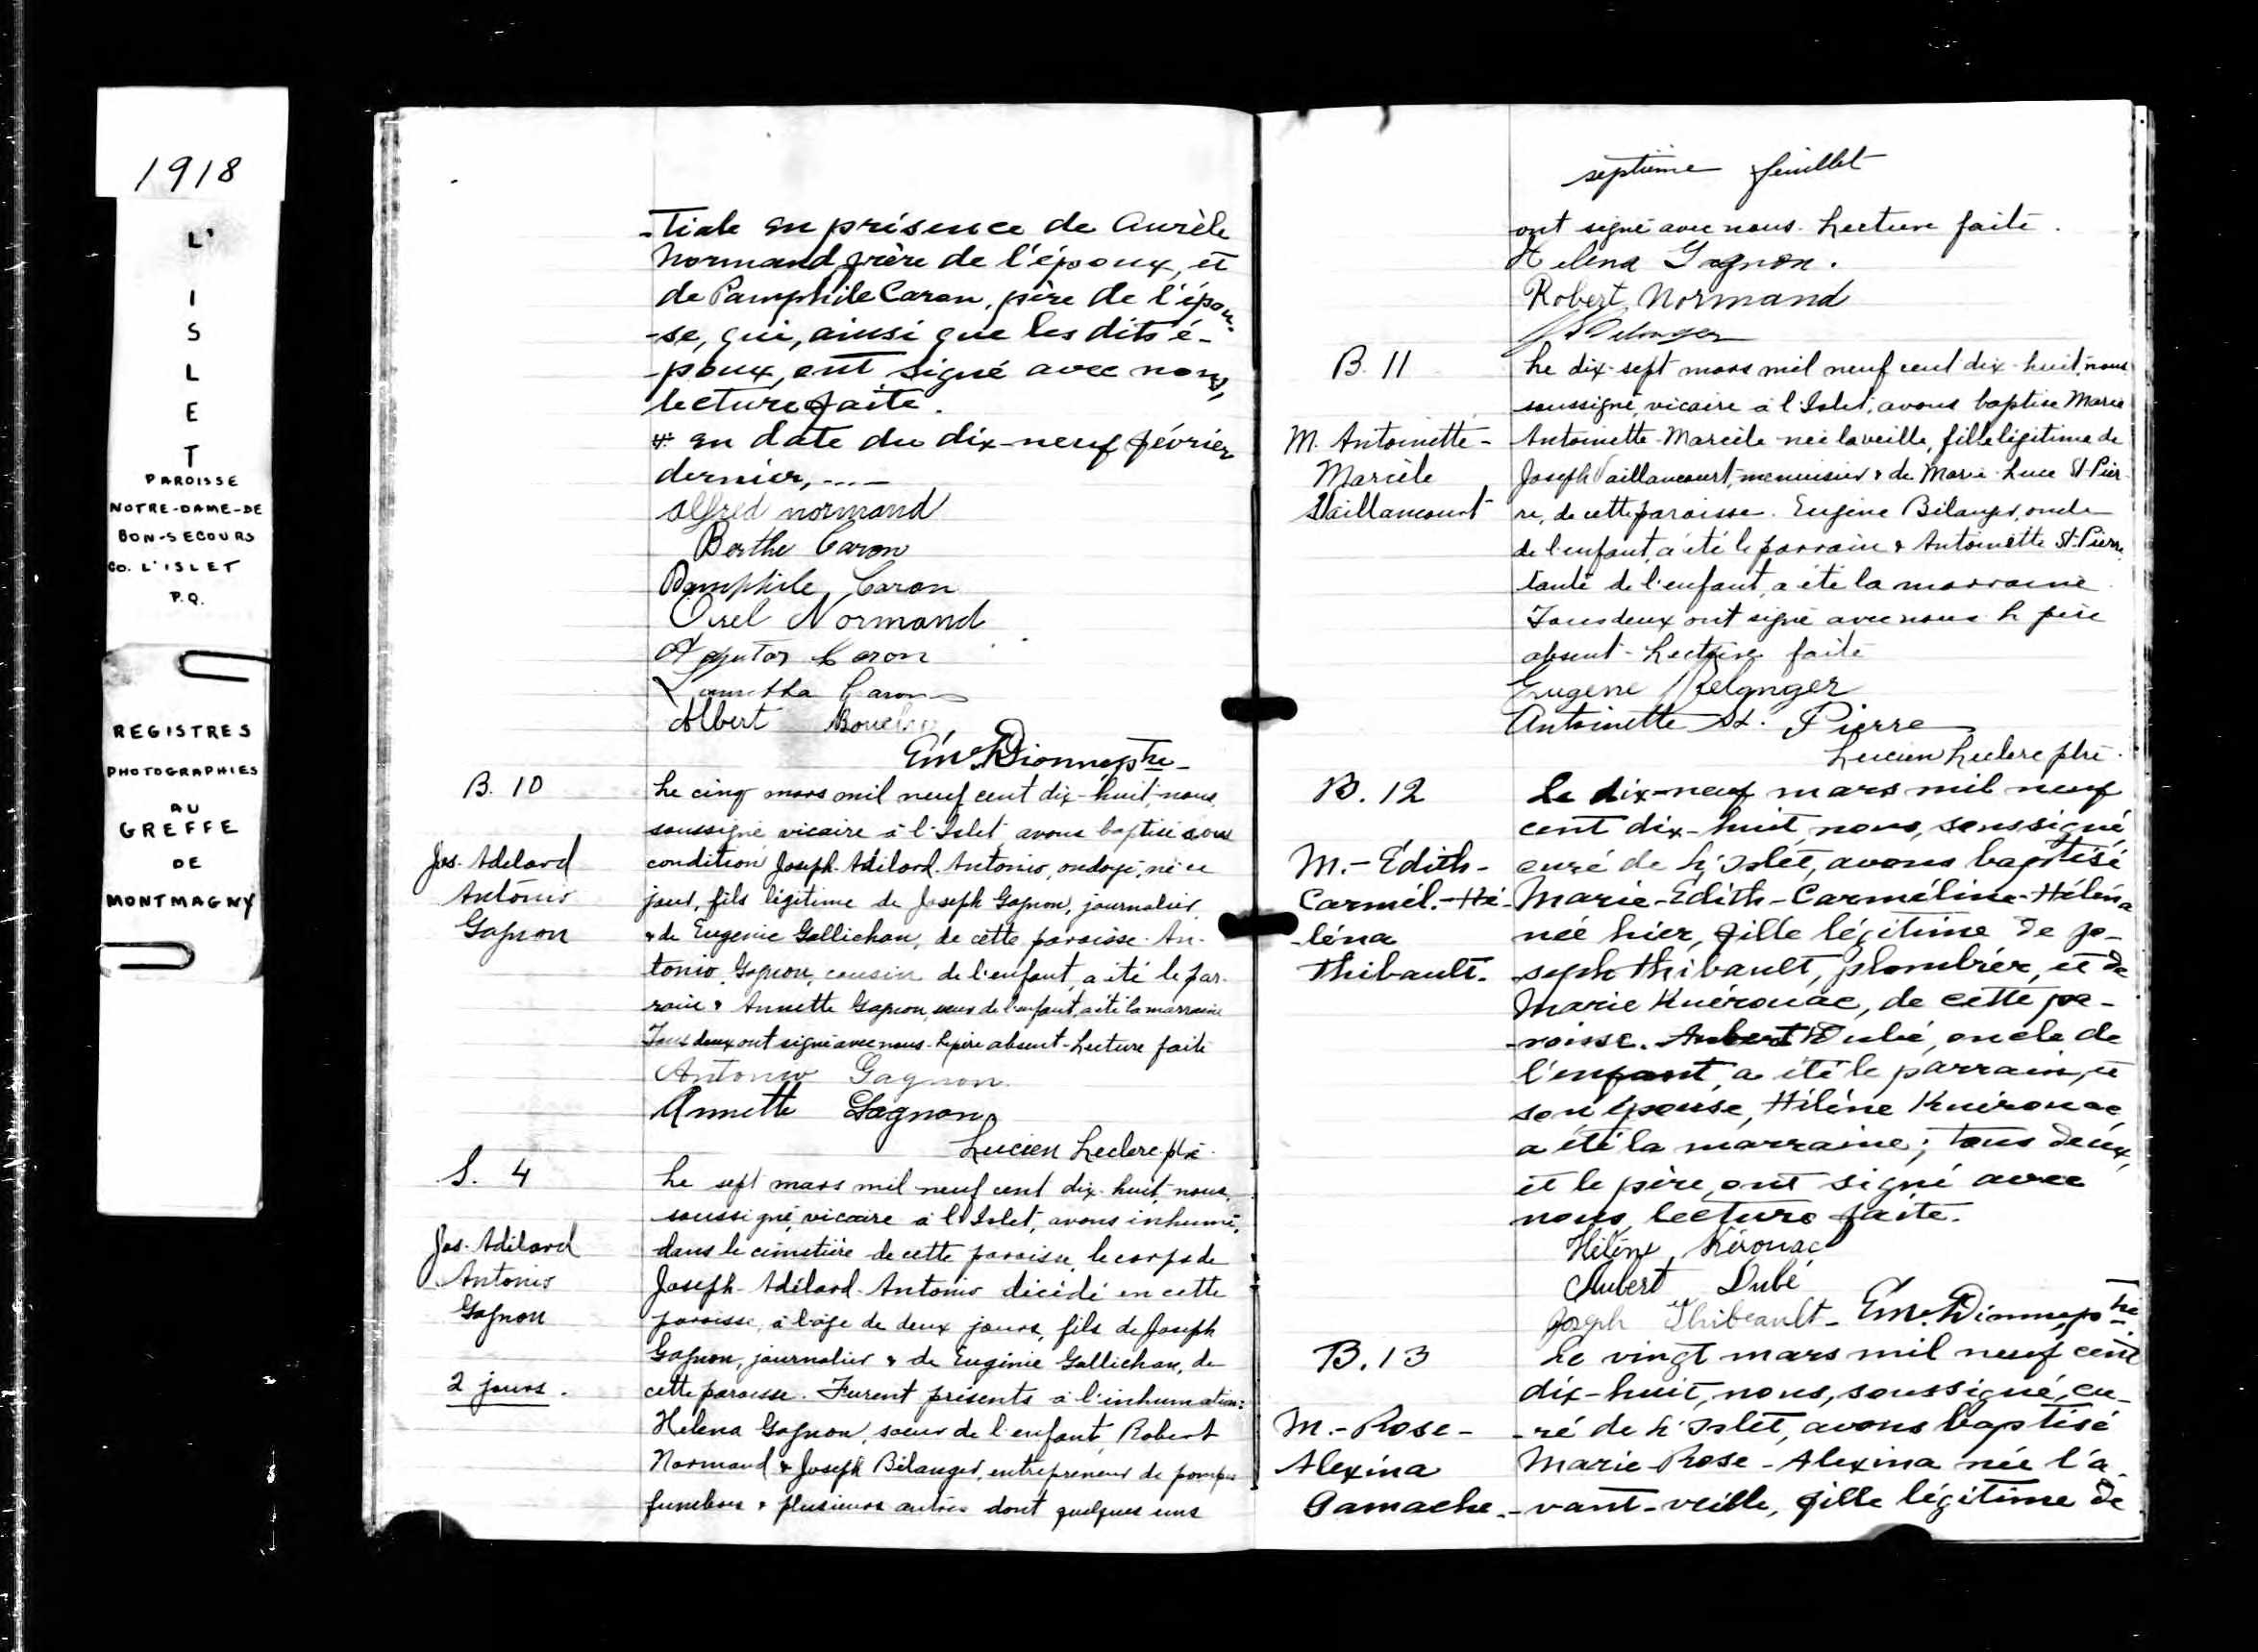 1918
L'
I
S
L
E
T
PAROISSE
NOTRE-DAME-DE
BON-SECOURS
CO. L'ISLET
P.Q.
REGISTRES
PHOTOGRAPHIES
AU
GREFFE
DE
MONTMAGNY
-tiale en présence de Aurèle
Normand, frère de l'époux, et
de Pamphile Caron, père de l'épou-
-se, qui, ainsi que les dits é-
-poux, ont signé avec nous,
lecture faite.
# en date du dix-neuf février
dernier, ----
Alfred Normand
Berthe Caron
Pamphile Caron
Orel Normand
Caron
Caron
Albert
Em. Dionne, ptre
B. 10
Jos. Adelard
Antonio
Gagnon
Le cinq mars mil neuf cent dix-huit, nous
soussigné vicaire à l'Islet, avons baptisé sous
condition Joseph-Adélard-Antonio, ondoyé, né ce
jour, fils légitime de Joseph Gagnon, journalier
& de Eugenie Gallichan, de cette paroisse. An-
tonio Gagnon, cousin de l'enfant, a été le par-
rain & Annette Gagnon, sœur de l'enfant, a été la marraine
Tous deux ont signé avec nous. Le père absent - Lecture faite
Antonio Gagnon
Annette Gagnon
Lucien Leclerc ptre.
S. 4
Jos. Adélard
Antonio
Gagnon
2 jours.
Le sept mars mil neuf cent dix-huit, nous,
soussigné, vicaire à l'Islet, avons inhumé,
dans le cimetière de cette paroisse, le corps de
Joseph-Adélard-Antonio décédé en cette
paroisse, à l'âge de deux jours, fils de Joseph
Gagnon, journalier & de Eugénie Gallichan, de
cette paroisse. Furent présents à l'inhumation:
Hélena Gagnon, sœur de l'enfant, Robert
Normand & Joseph Bélanger, entrepreneur de pompes
funèbres & plusieurs autres dont quelques uns
septième feuillet
ont signé avec nous. Lecture faite.
Helena Gagnon.
Robert Normand
Belanger
B. 11
M. Antoinette-
Marcèle
Vaillancourt
Le dix-sept mars mil neuf cent dix-huit, nous
soussigné, vicaire à l'Islet, avons baptisé Marie
Antoinette-Marcèle née la veille, fille légitime de
Joseph Vaillancourt, menuisier & de Marie-Luce St-Pier-
re, de cette paroisse. Eugène Bélanger, oncle
de l'enfant, a été le parrain & Antoinette St-Pierre,
tante de l'enfant, a été la marraine.
Tous deux ont signé avec nous. Le père
absent - Lecture faite
Eugene Belanger
Antoinette St. Pierre
Lucien Leclerc ptre.
B. 12
M.-Édith-
Carmél.-Hé-
-léna
Thibault.
Le dix-neuf mars mil neuf
cent dix-huit, nous, soussigné,
curé de L'Islet, avons baptisé
Marie-Edith-Carméline-Hélèna
née hier, fille légitime de Jo-
-seph Thibault, plombier, et de
Marie Kuérouac, de cette pa-
-roisse. Aubert Dubé, oncle de
l'enfant, a été le parrain, et
son épouse, Hélène Kuérouac
a été la marraine; tous deux,
et le père, ont signé avec
nous, lecture faite.
Hélène Kérouac
Aubert Dubé
Joseph Thibeault - Em. Dionne, ptre
B. 13
M.-Rose-
Alexina
Gamache.
Le vingt mars mil neuf cent
dix-huit, nous, soussigné, cu-
-ré de L'Islet, avons baptisé
Marie-Rose-Alexina née l'a-
-vant-veille, fille légitime de